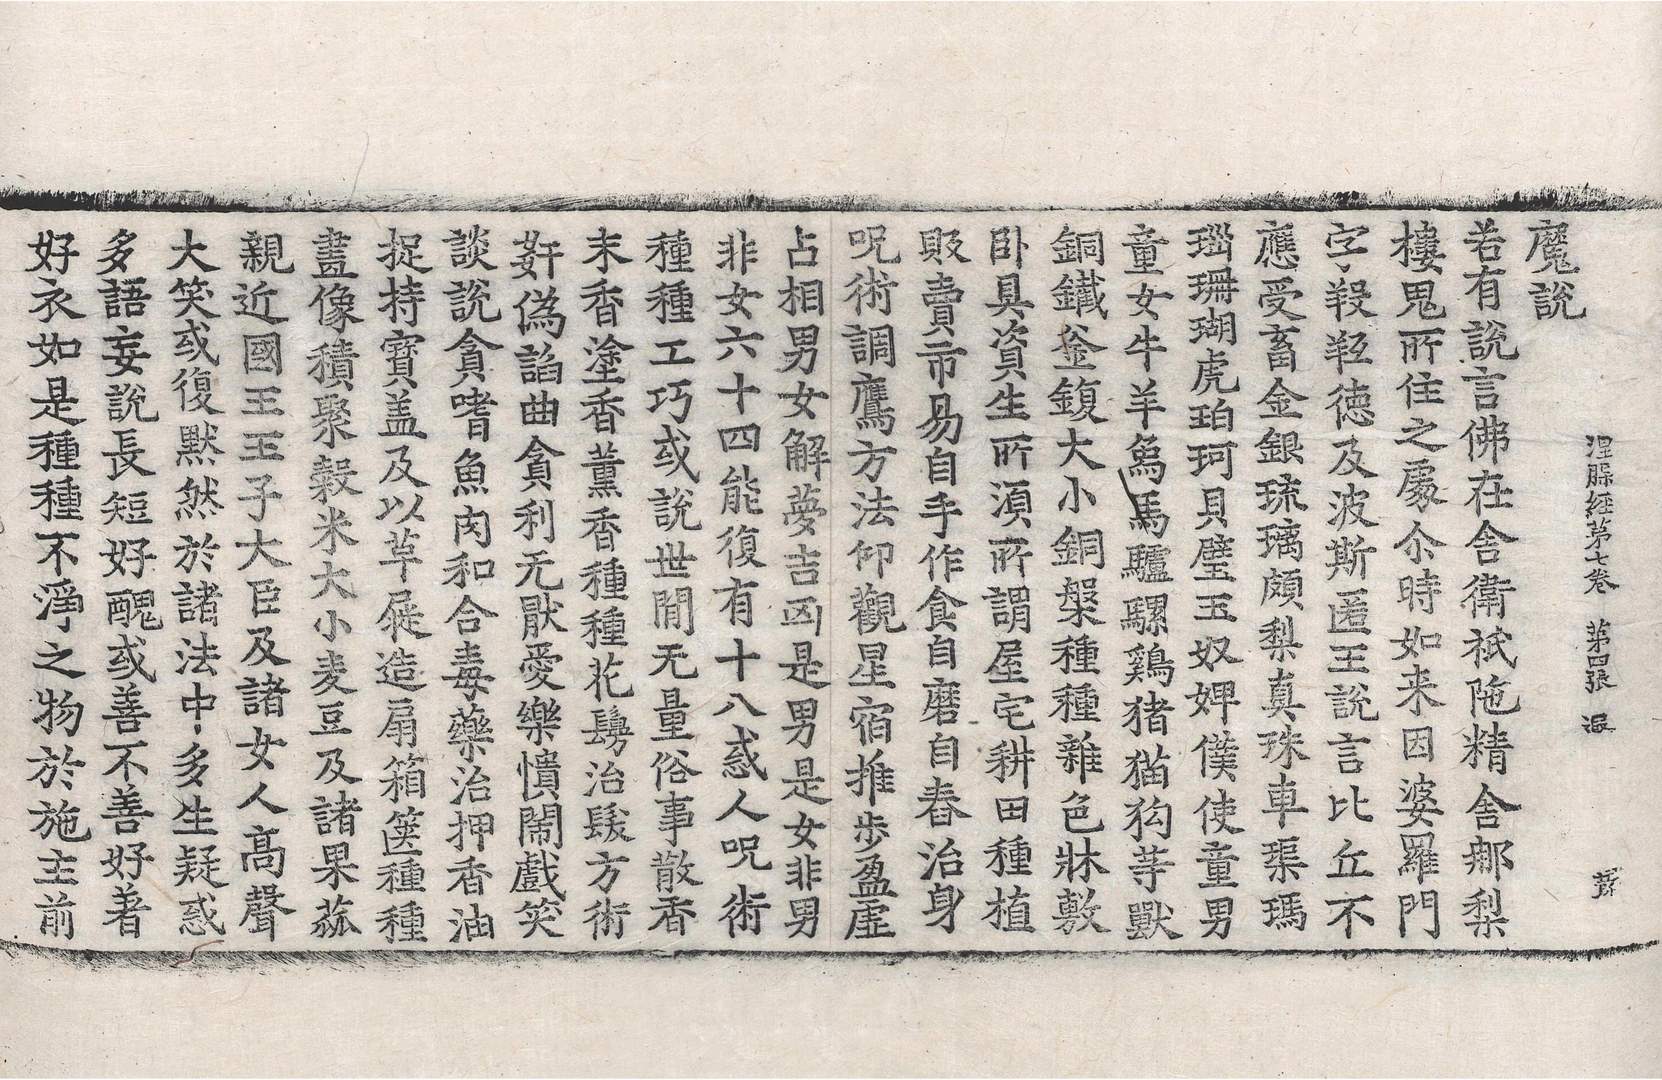 涅槃経苐七卷 苐四張 湿
魔說
若有說言佛在舍衛祇陁精舍郍梨
樓鬼所住之處尒時如来因婆羅門
字羖羝德及波斯匿王說言比丘不
應受畜金銀琉璃頗梨真珠車璖瑪
瑙珊瑚虎珀珂貝璧玉奴婢僕使童男
童女牛羊象馬驢騾鷄猪猫狗䓁獸
銅鐵釜鍑大小銅槃種種雜色牀敷
卧具資生所湏所謂屋宅耕田種植
販賣市易自手作食自磨自舂治身
呪術調鷹方法仰觀星宿推步盈虛
占相男女解夢吉凶是男是女非男
非女六十四能復有十八惑人呪術
種種工巧或說世閒无量俗事散香
末香塗香薰香種種花鬘治髮方術
姧偽諂曲貪利无猒愛樂憒閙戲笑
談說貪嗜魚肉和合毒藥治押香油
捉持寶盖及以草屣造扇箱篋種種
畫像積聚糓米大小麦豆及諸果蓏
親近國王王子大臣及諸女人高聲
大笑或復默然於諸法中多生疑惑
多語妄說長短好醜或善不善好著
好衣如是種種不淨之物於施主前